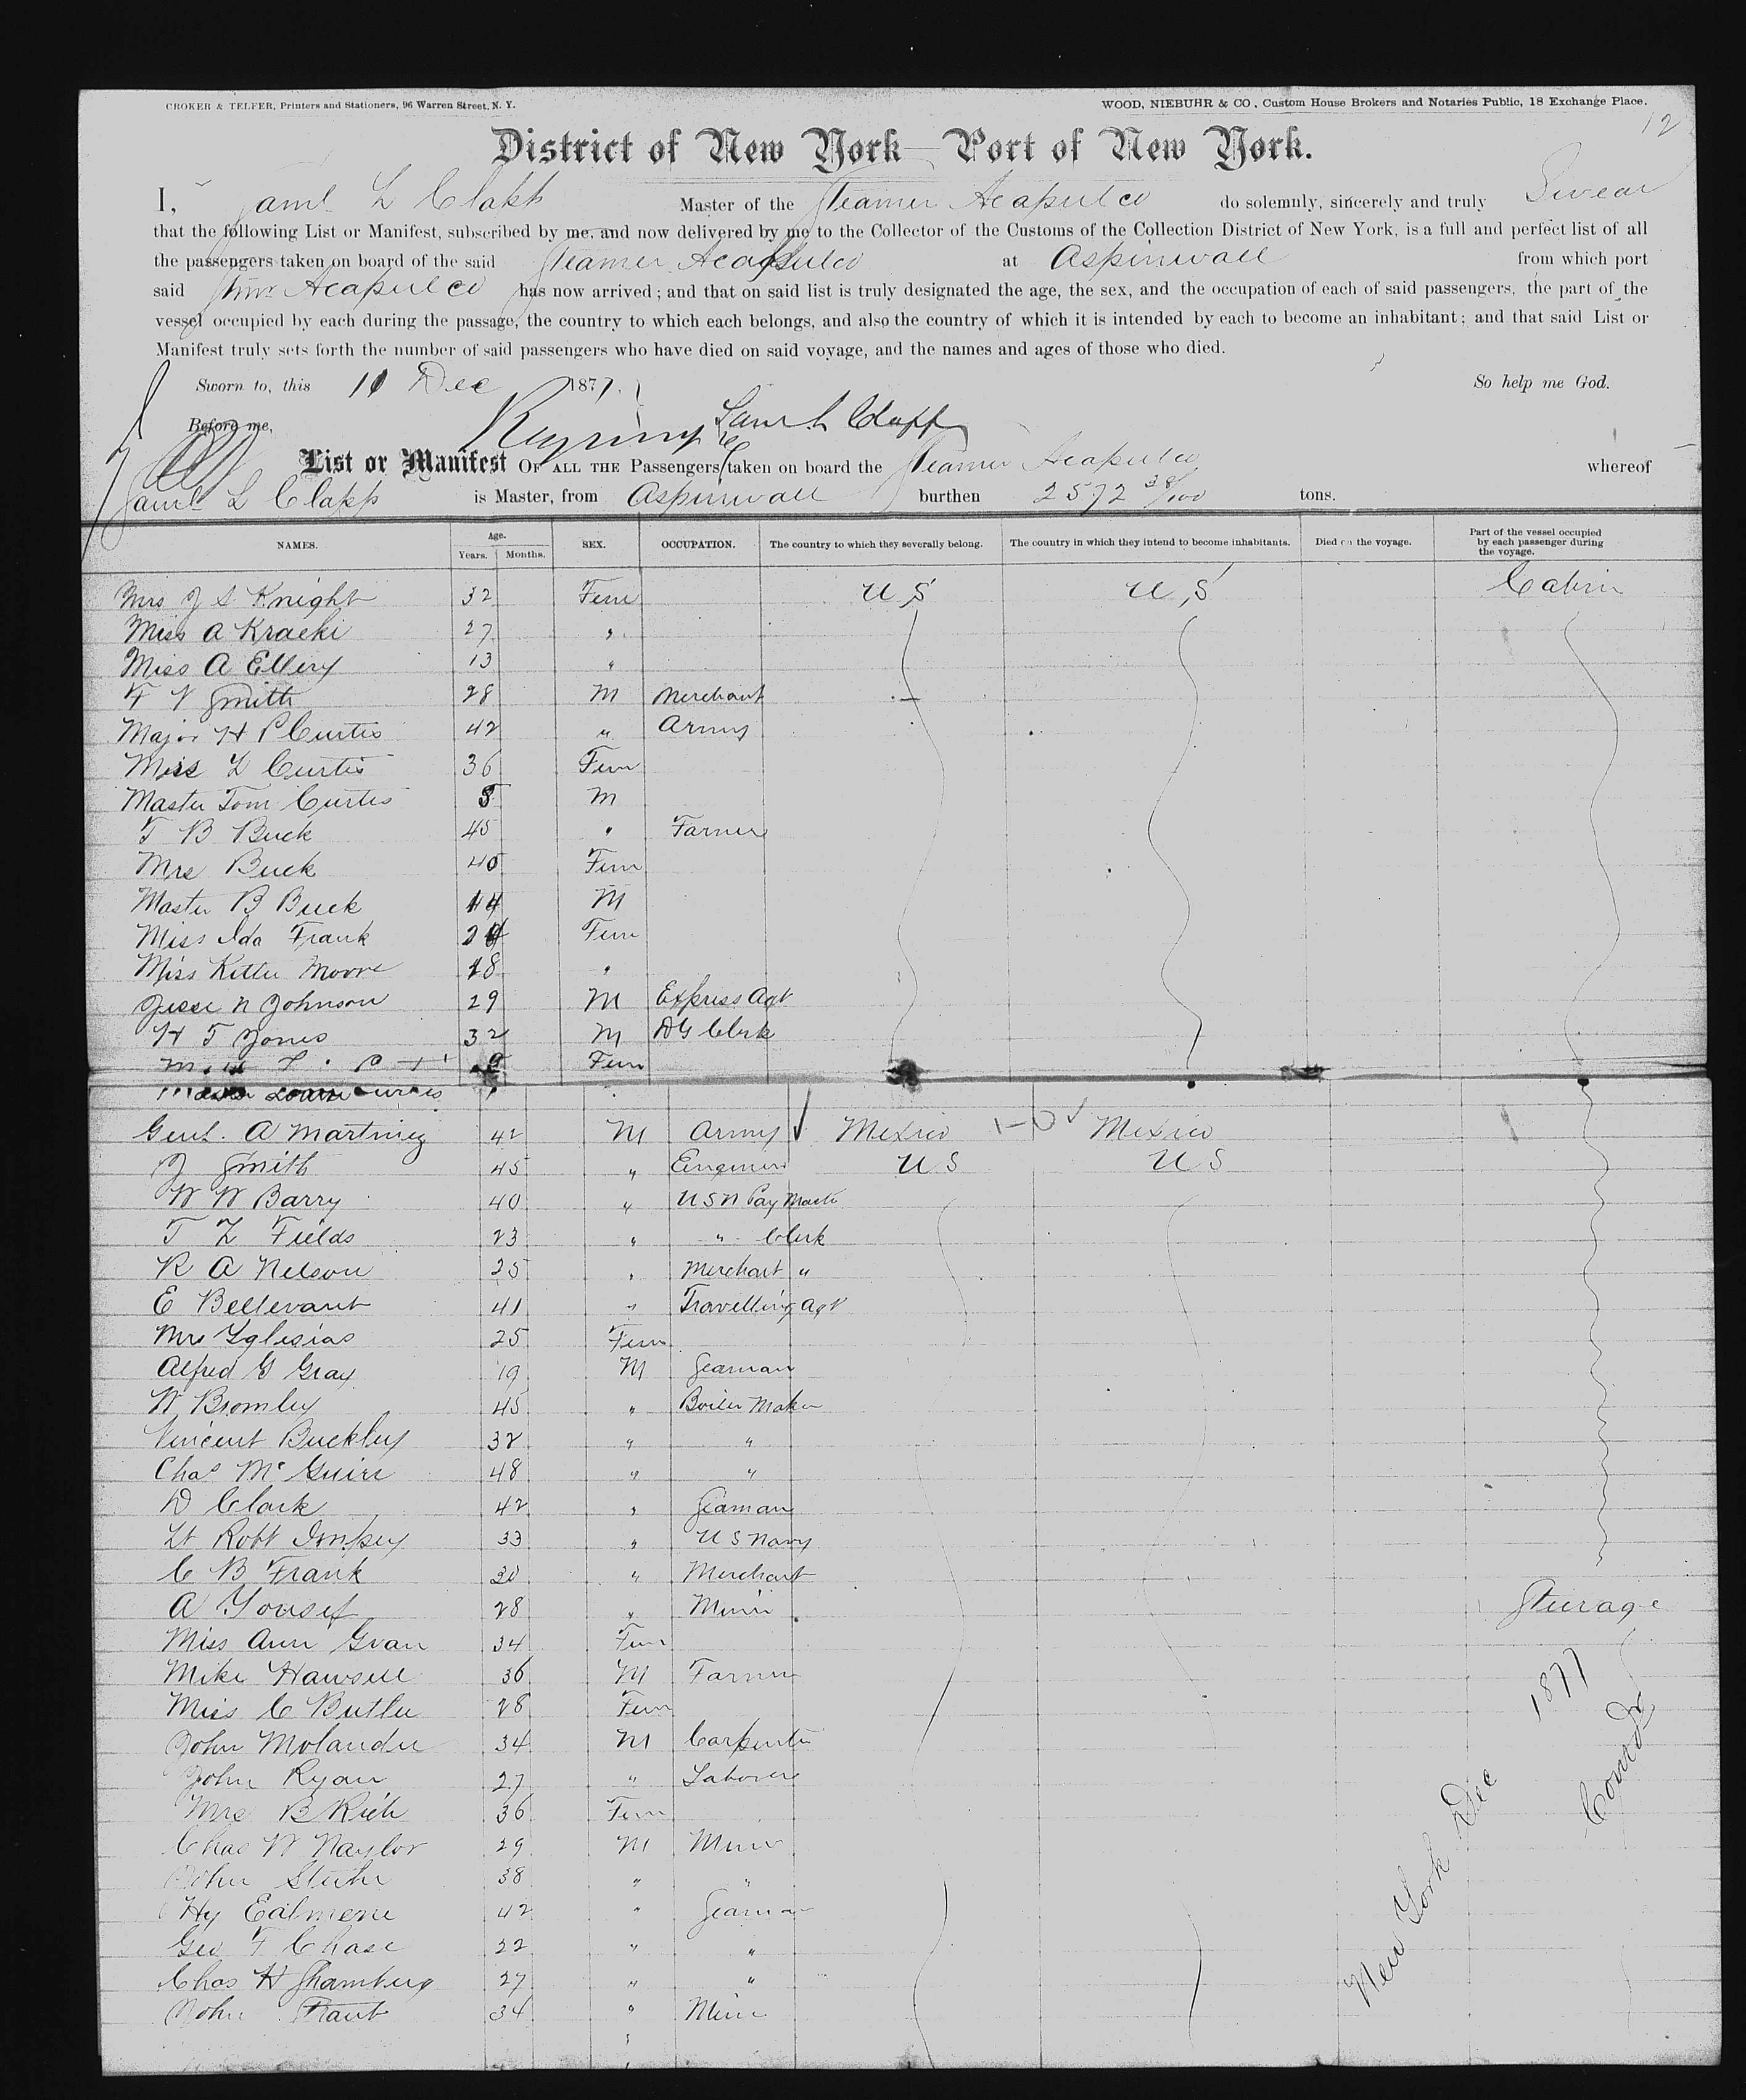 CROKER & TELFER, Printers and Stationers, 96 Warren Street, N. Y.
WOOD, NIEBUHR & CO., Custom House Brokers and Notaries Public, 18 Exchange Place.
12
District of New York - Port of New York.
I, Saml L Clapp Master of the Steamer Acapulco do solemnly, sincerely and truly Swear
that the following List or Manifest, subscribed by me, and now delivered by me to the Collector of the Customs of the Collection District of New York, is a full and perfect list of all
the passengers taken on board of the said Steamer Acapulco at Aspinwall from which port
said Stmr Acapulco has now arrived; and that on said list is truly designated the age, the sex, and the occupation of each of said passengers, the part of the
vessel occupied by each during the passage, the country to which each belongs, and also the country of which it is intended by each to become an inhabitant; and that said List or
Manifest truly sets forth the number of said passengers who have died on said voyage, and the names and ages of those who died.
Sworn to, this 11 Dec 1877. So help me God.
Before me, Saml L Clapp
List or Manifest OF ALL THE Passengers taken on board the Steamer Acapulco whereof
Saml L Clapp is Master, from Aspinwall burthen 2572 38/100 tons.
NAMES. Age. Years. Months. SEX. OCCUPATION. The country to which they severally belong. The country in which they intend to become inhabitants. Died on the voyage. Part of the vessel occupied by each passenger during the voyage.
Mrs J S Knight 32 Fem U S U S Cabin
Miss A Kraeki 27 "
Miss A Ellery 13 "
F V Smith 28 M Merchant
Major H P Curtis 42 " Army
Miss L Curtis 36 Fem
Master Tom Curtis 5 M
T B Buck 45 " Farmer
Mrs Buck 40 Fem
Master B Buck 14 M
Miss Ida Frank 24 Fem
Miss Kittie Moore 18 "
Jesse N Johnson 29 M Express Agt
H T Jones 32 M DG Clerk
Fem
Curtis
Genl. A Martinez 42 M Army Mexico Mexico
J Smith 45 " Engineer U S U S
W W Barry 40 " U S N Pay Mastr
T L Fields 23 " " Clerk
R A Nelson 25 " Merchant "
E Bellevant 41 " Travelling Agt
Mrs Yglesias 25 Fem
Alfred G Gray 19 M Seaman
W Bromley 45 " Boiler Maker
Vincent Buckley 32 " "
Chas McGuire 48 " "
D Clark 42 " Seaman
Lt Robt Impey 33 " U S Navy
C B Frank 30 " Merchant
A Yousef 28 " Miner Steerage
Miss Ann Gvan 34 Fem
Mike Hawsell 36 M Farmer
Miss C Butler 28 Fem
John Molander 34 M Carpenter
John Ryan 27 " Laborer
Mrs B Rich 36 Fem
Chas W Naylor 29 M Miner
John Stuhr 38 " "
Hy Ealmene 42 " Seaman
Geo F Chase 22 " "
Chas H Shamberg 27 " "
John Traut 34 " Miner
New York Dec 1877